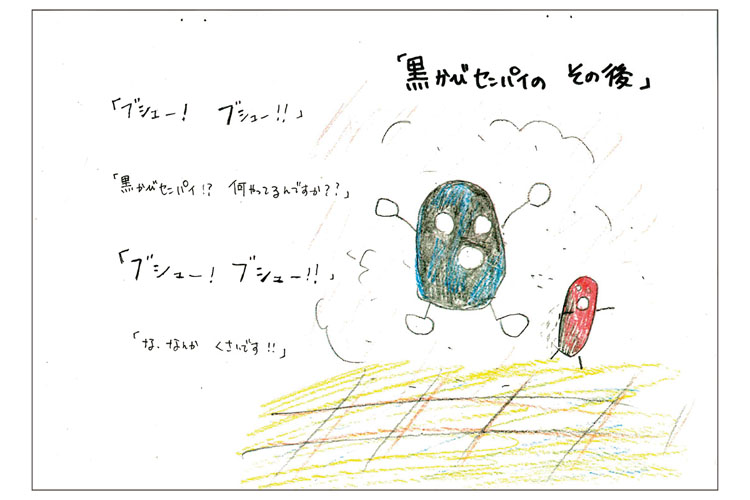 「黒かびセンパイの その後」
「ブシュー! ブシュー!!」
「黒かびセンパイ!? 何やってるんですか??」
「ブシュー! ブシュー!!」
「な、なんか くさいです!!」